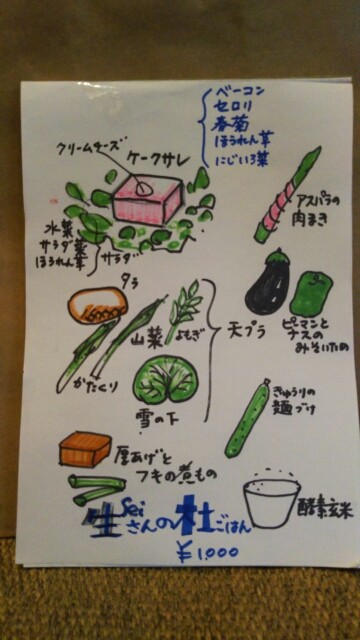 ベーコン
セロリ
春菊
ほうれん草
にじいろ菜
クリームチーズ
ケークサレ
水菜
サラダ菜
ほうれん草
サラダ
アスパラの
肉まき
タラ
山菜
よもぎ
かたくり
雪の下
天プラ
ピーマンと
ナスの
みそいため
きゅうりの
麹づけ
厚あげと
フキの煮もの
酵素玄米
生Seiさんの杜ごはん
¥1,000